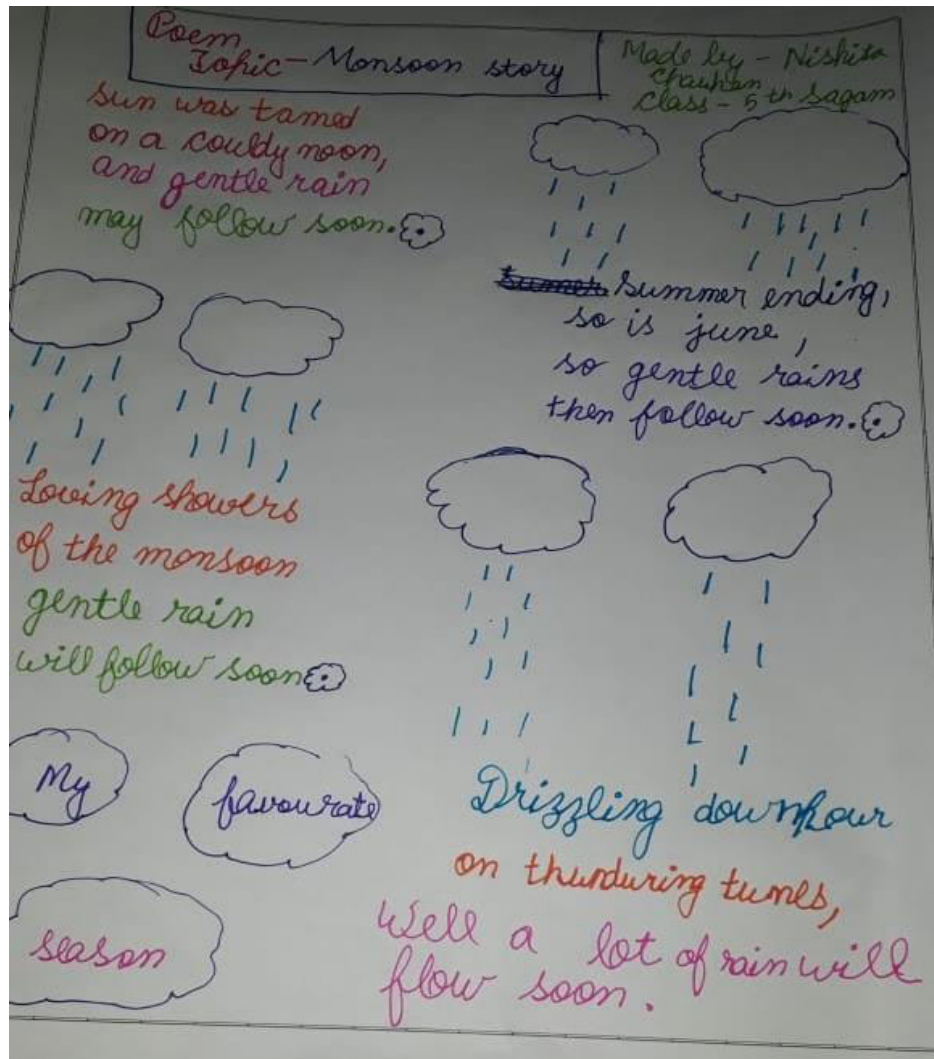 Poem
Topic - Monsoon story
Made by - Nishita
Chauhan
Class - 5th Sagam
Sun was tamed
on a couldy noon,
and gentle rain
may follow soon.
Summer ending,
so is june,
so gentle rains
then follow soon.
Loving showers
of the monsoon
gentle rain
will follow soon
Drizzling downpour
on thunduring tunes,
Well a lot of rain will
flow soon.
My
favourate
season